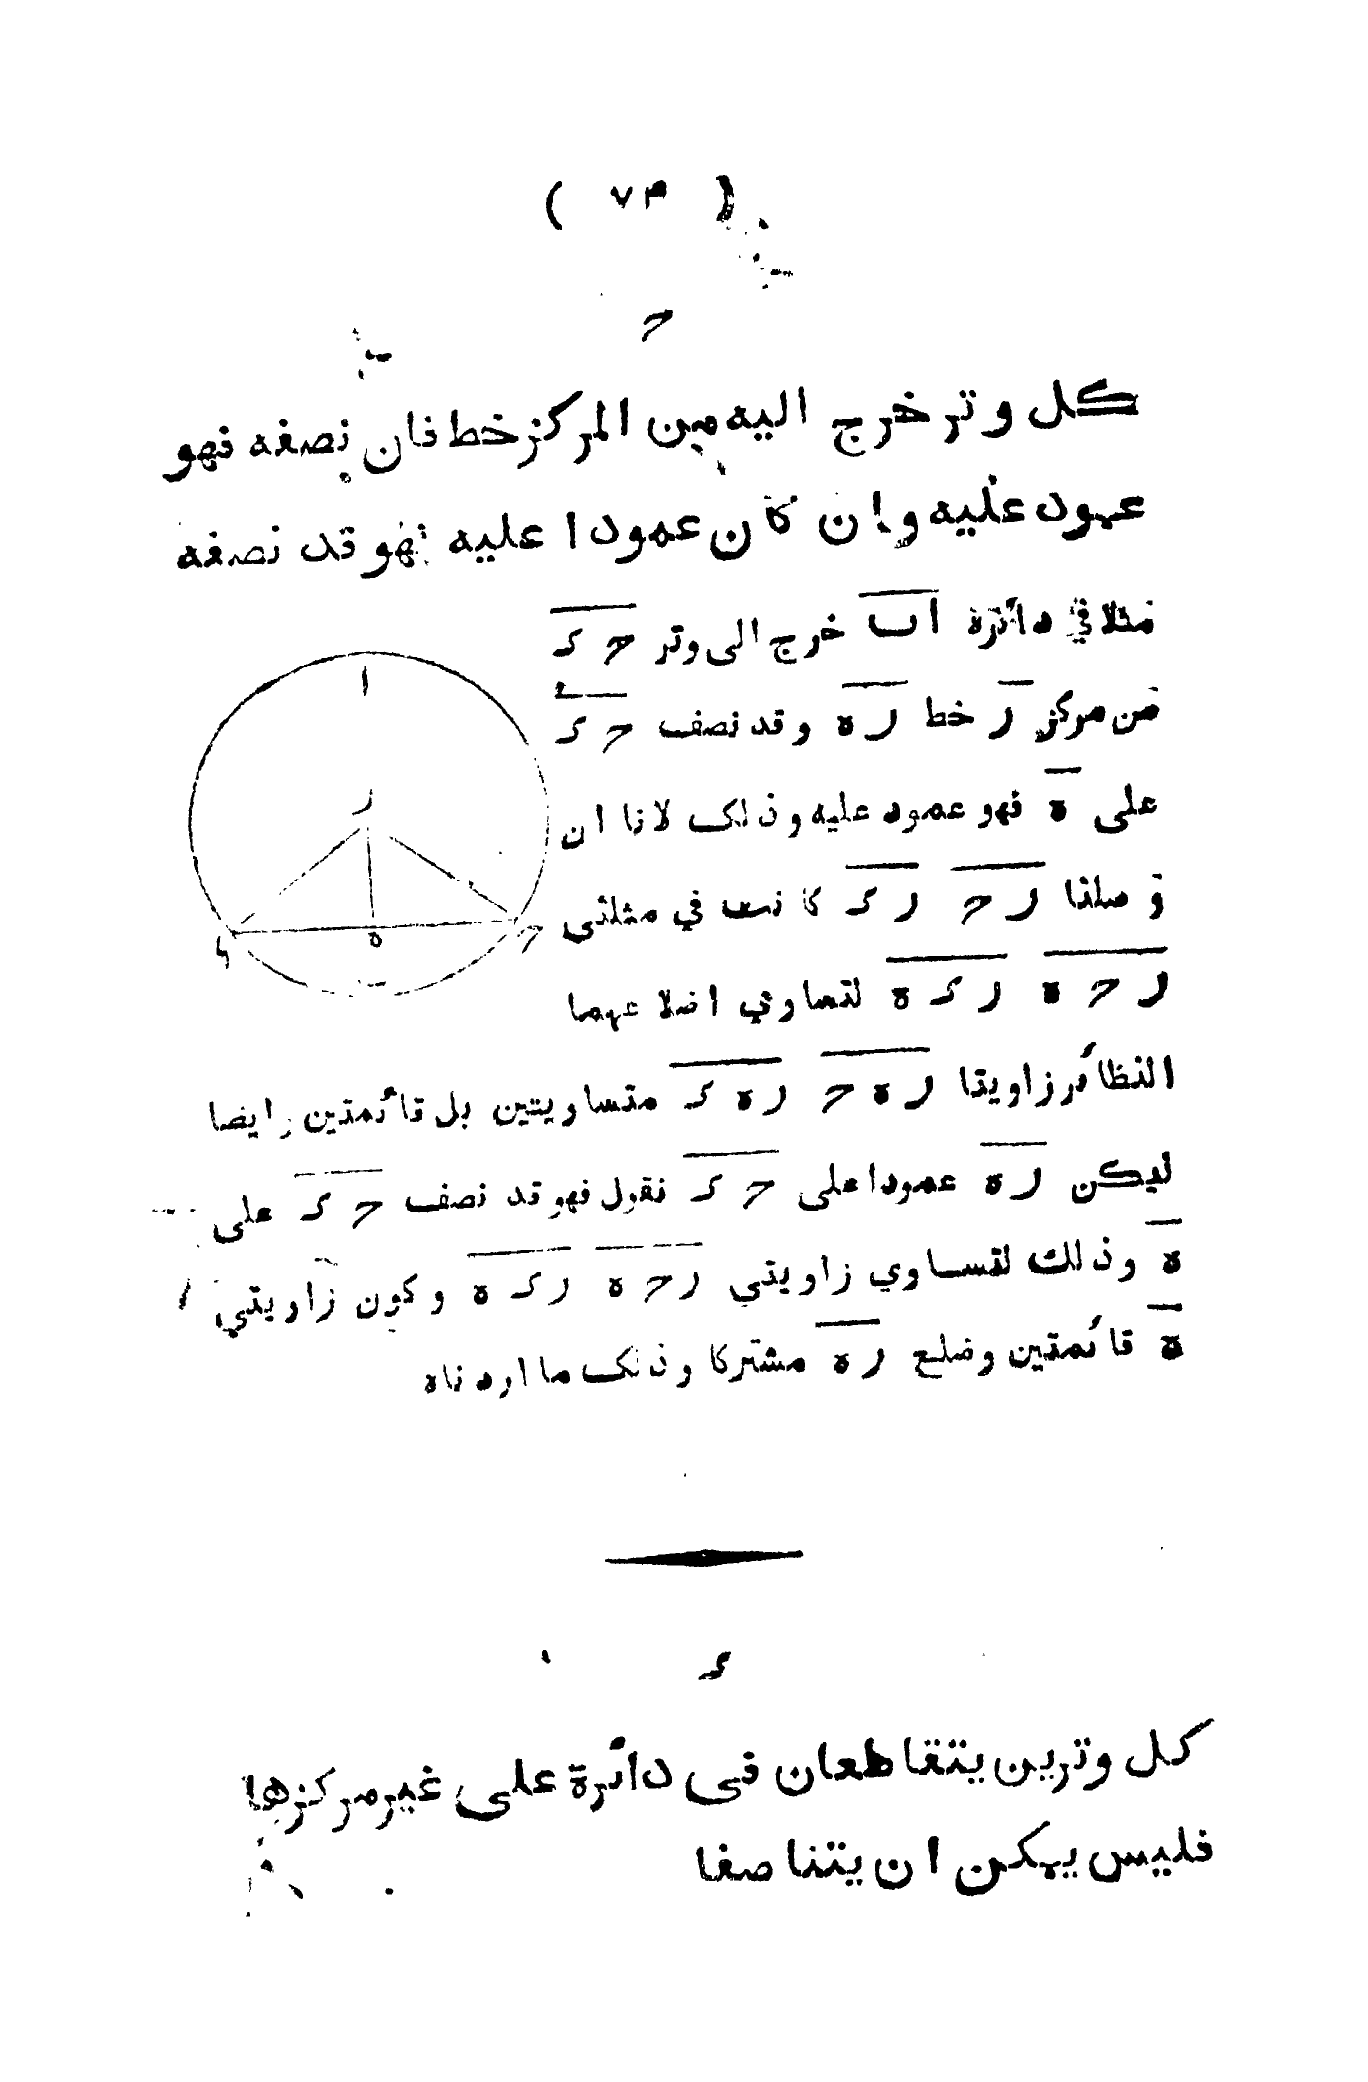 ( ٧٣ )
ح
كل وتر خرج اليه من المركز خط فان نصفه فهو
عمود عليه وان كان عمودا عليه فهو قد نصفه
مثلا في دائرة اب خرج الى وتر ح د
من مركز ر خط ر ه وقد نصف ح د
على ه فهو عمود عليه وذلك لانا ان
وصلنا ر ح ر د كانت في مثلثي
ر ح ه ر د ه لتساوي اضلاعهما
النظائر زاويتا ر ه ح ر ه د متساويتين بل قائمتين وايضا
ليكن ر ه عمودا على ح د نقول فهو قد نصف ح د على
ه وذلك لتساوي زاويتي ر ح ه ر د ه وكون زاويتي
ه قائمتين وضلع ر ه مشتركا وذلك ما اردناه
ا
ر
د ه ح
ب
د
كل وترين يتقاطعان فى دائرة على غير مركزها
فليس يمكن ان يتناصفا